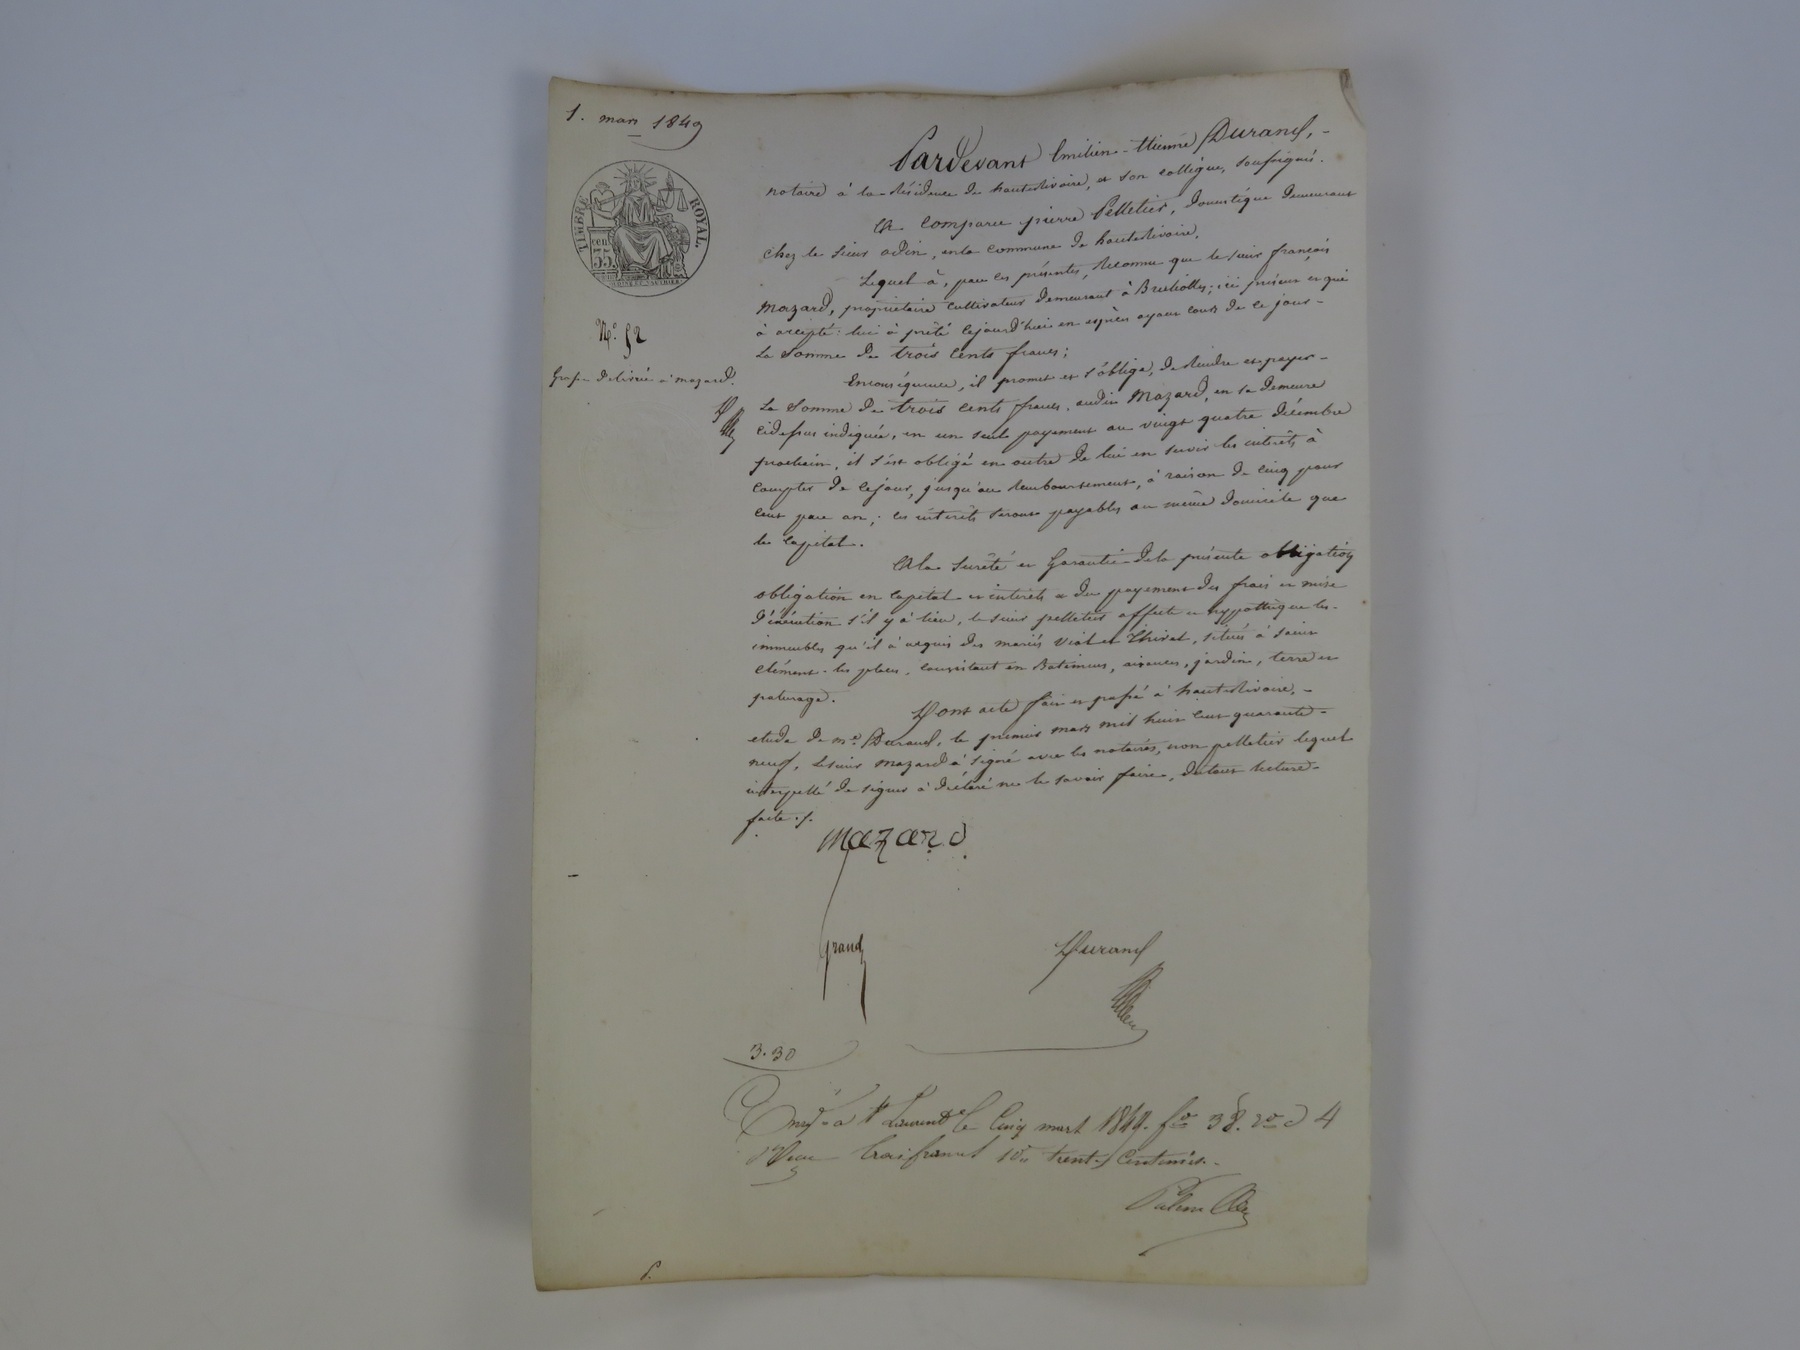 1. mars 1849
TIMBRE ROYAL.
cen
35.
N.o 52
Grosse délivrée à mazard.
Pardevant Emilien-Etienne Durand,-
notaire à la résidence de hauterivoire, et son collègue, soussignés.
A comparu pierre Pelletier, domestique demeurant
chez le sieur odin, en la commune de hauterivoire.
Lequel à, par ces présentes, reconnu que le sieur françois
Mazard, propriétaire cultivateur demeurant à Brullioles; ici présent et qui
à accepté: lui à prêté cejourd'hui en espèces ayant cours de ce jour-
la somme de trois cents francs;
Enconséquence, il promet et s'oblige, de rendre et payer-
la somme de trois cents francs, audit Mazard, en sa demeure
cidessus indiquée, en un seul payement au vingt quatre décembre
prochain, il s'est obligé en outre de lui en servir les intérêts à
compter de cejour, jusqu'au remboursement, à raison de cinq pour
cent par an; les intérêts seront payables au même domicile que
le capital.
A la sureté et Garantie de la présente obligation
obligation en capital et intérêts et du payement des frais et mise
d'éxécution s'il y à lieu, le sieur pelletier affecte et hyppothèque les-
immeubles qu'il à acquis des mariés Vial et Thivel, situés à saint
clément-les places, consistant en Batimens, aisances, jardin, terre et
paturage.
Dont acte fait et passé à hauterivoire,-
etude de me. Durand, le premier mars mil huit cent quarante-
neuf, Lesieur mazard à signé avec les notaires, non pelletier lequel
interpellé de signer à déclaré ne le savoir faire, du tout lecture-
faite ./.
Mazard
Grand
Durand
3.30
Enreg. à St Laurent le Cinq mars 1849. fo 38. Vo C 4
Reçu trois francs 10e trente Centimes.